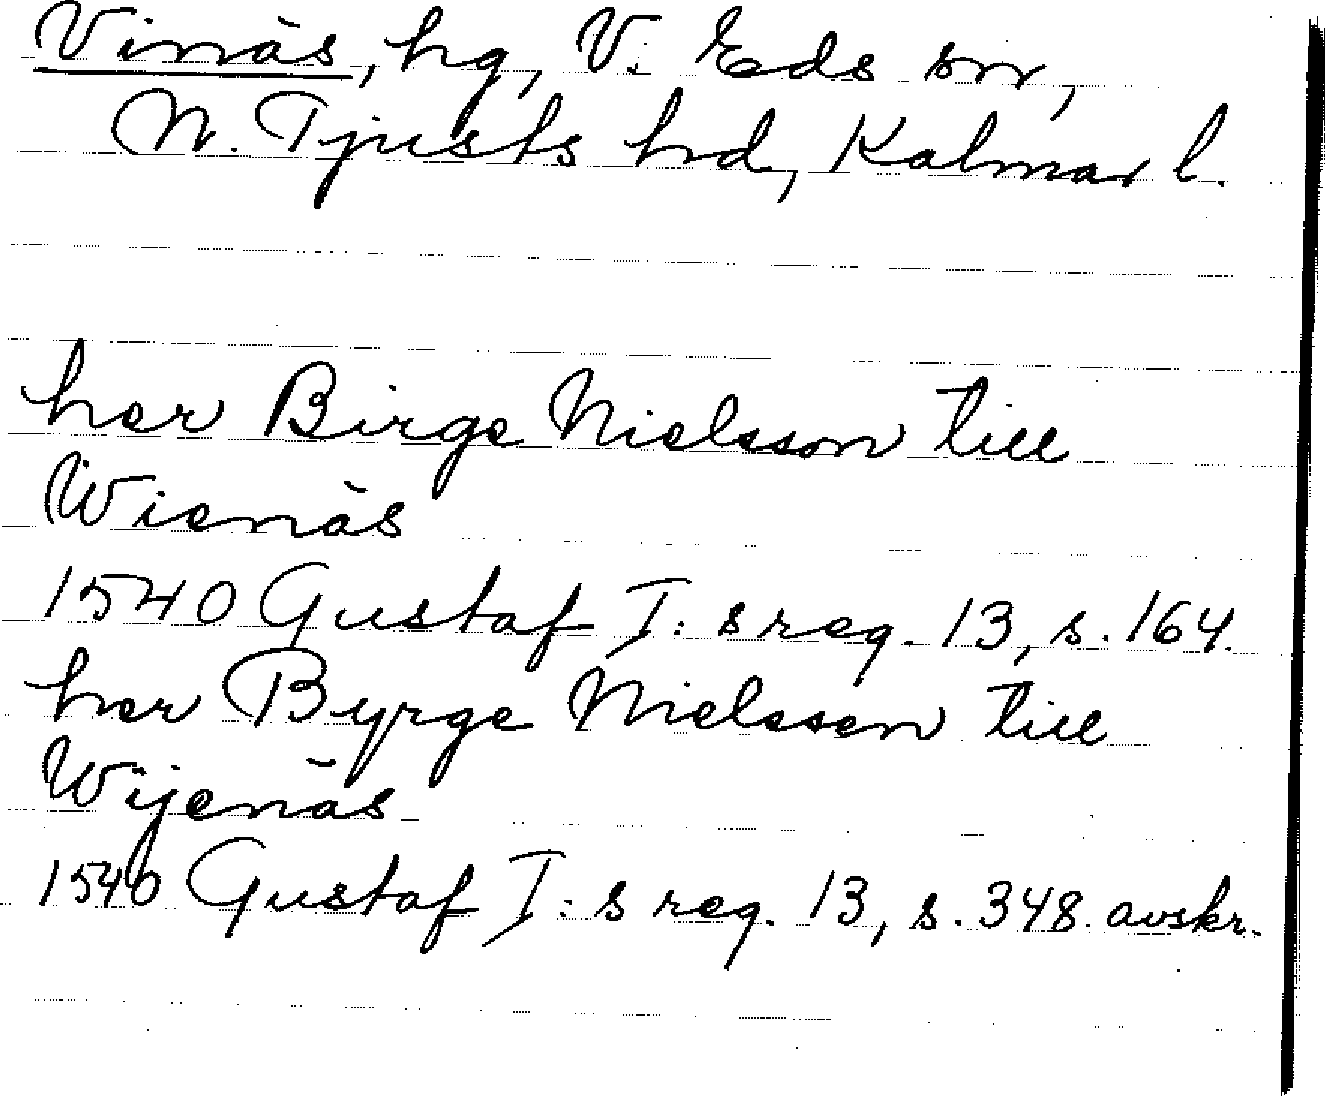 Vinäs, hg, V. Eds sn,
N. Tjusts hd, Kalmar l.
her Birge Nielsson till
Wienäs
1540 Gustaf I:s reg. 13, s. 164.
her Byrge Nielssen till
Wijenäs
1540 Gustaf I:s reg. 13, s. 348. avskr.